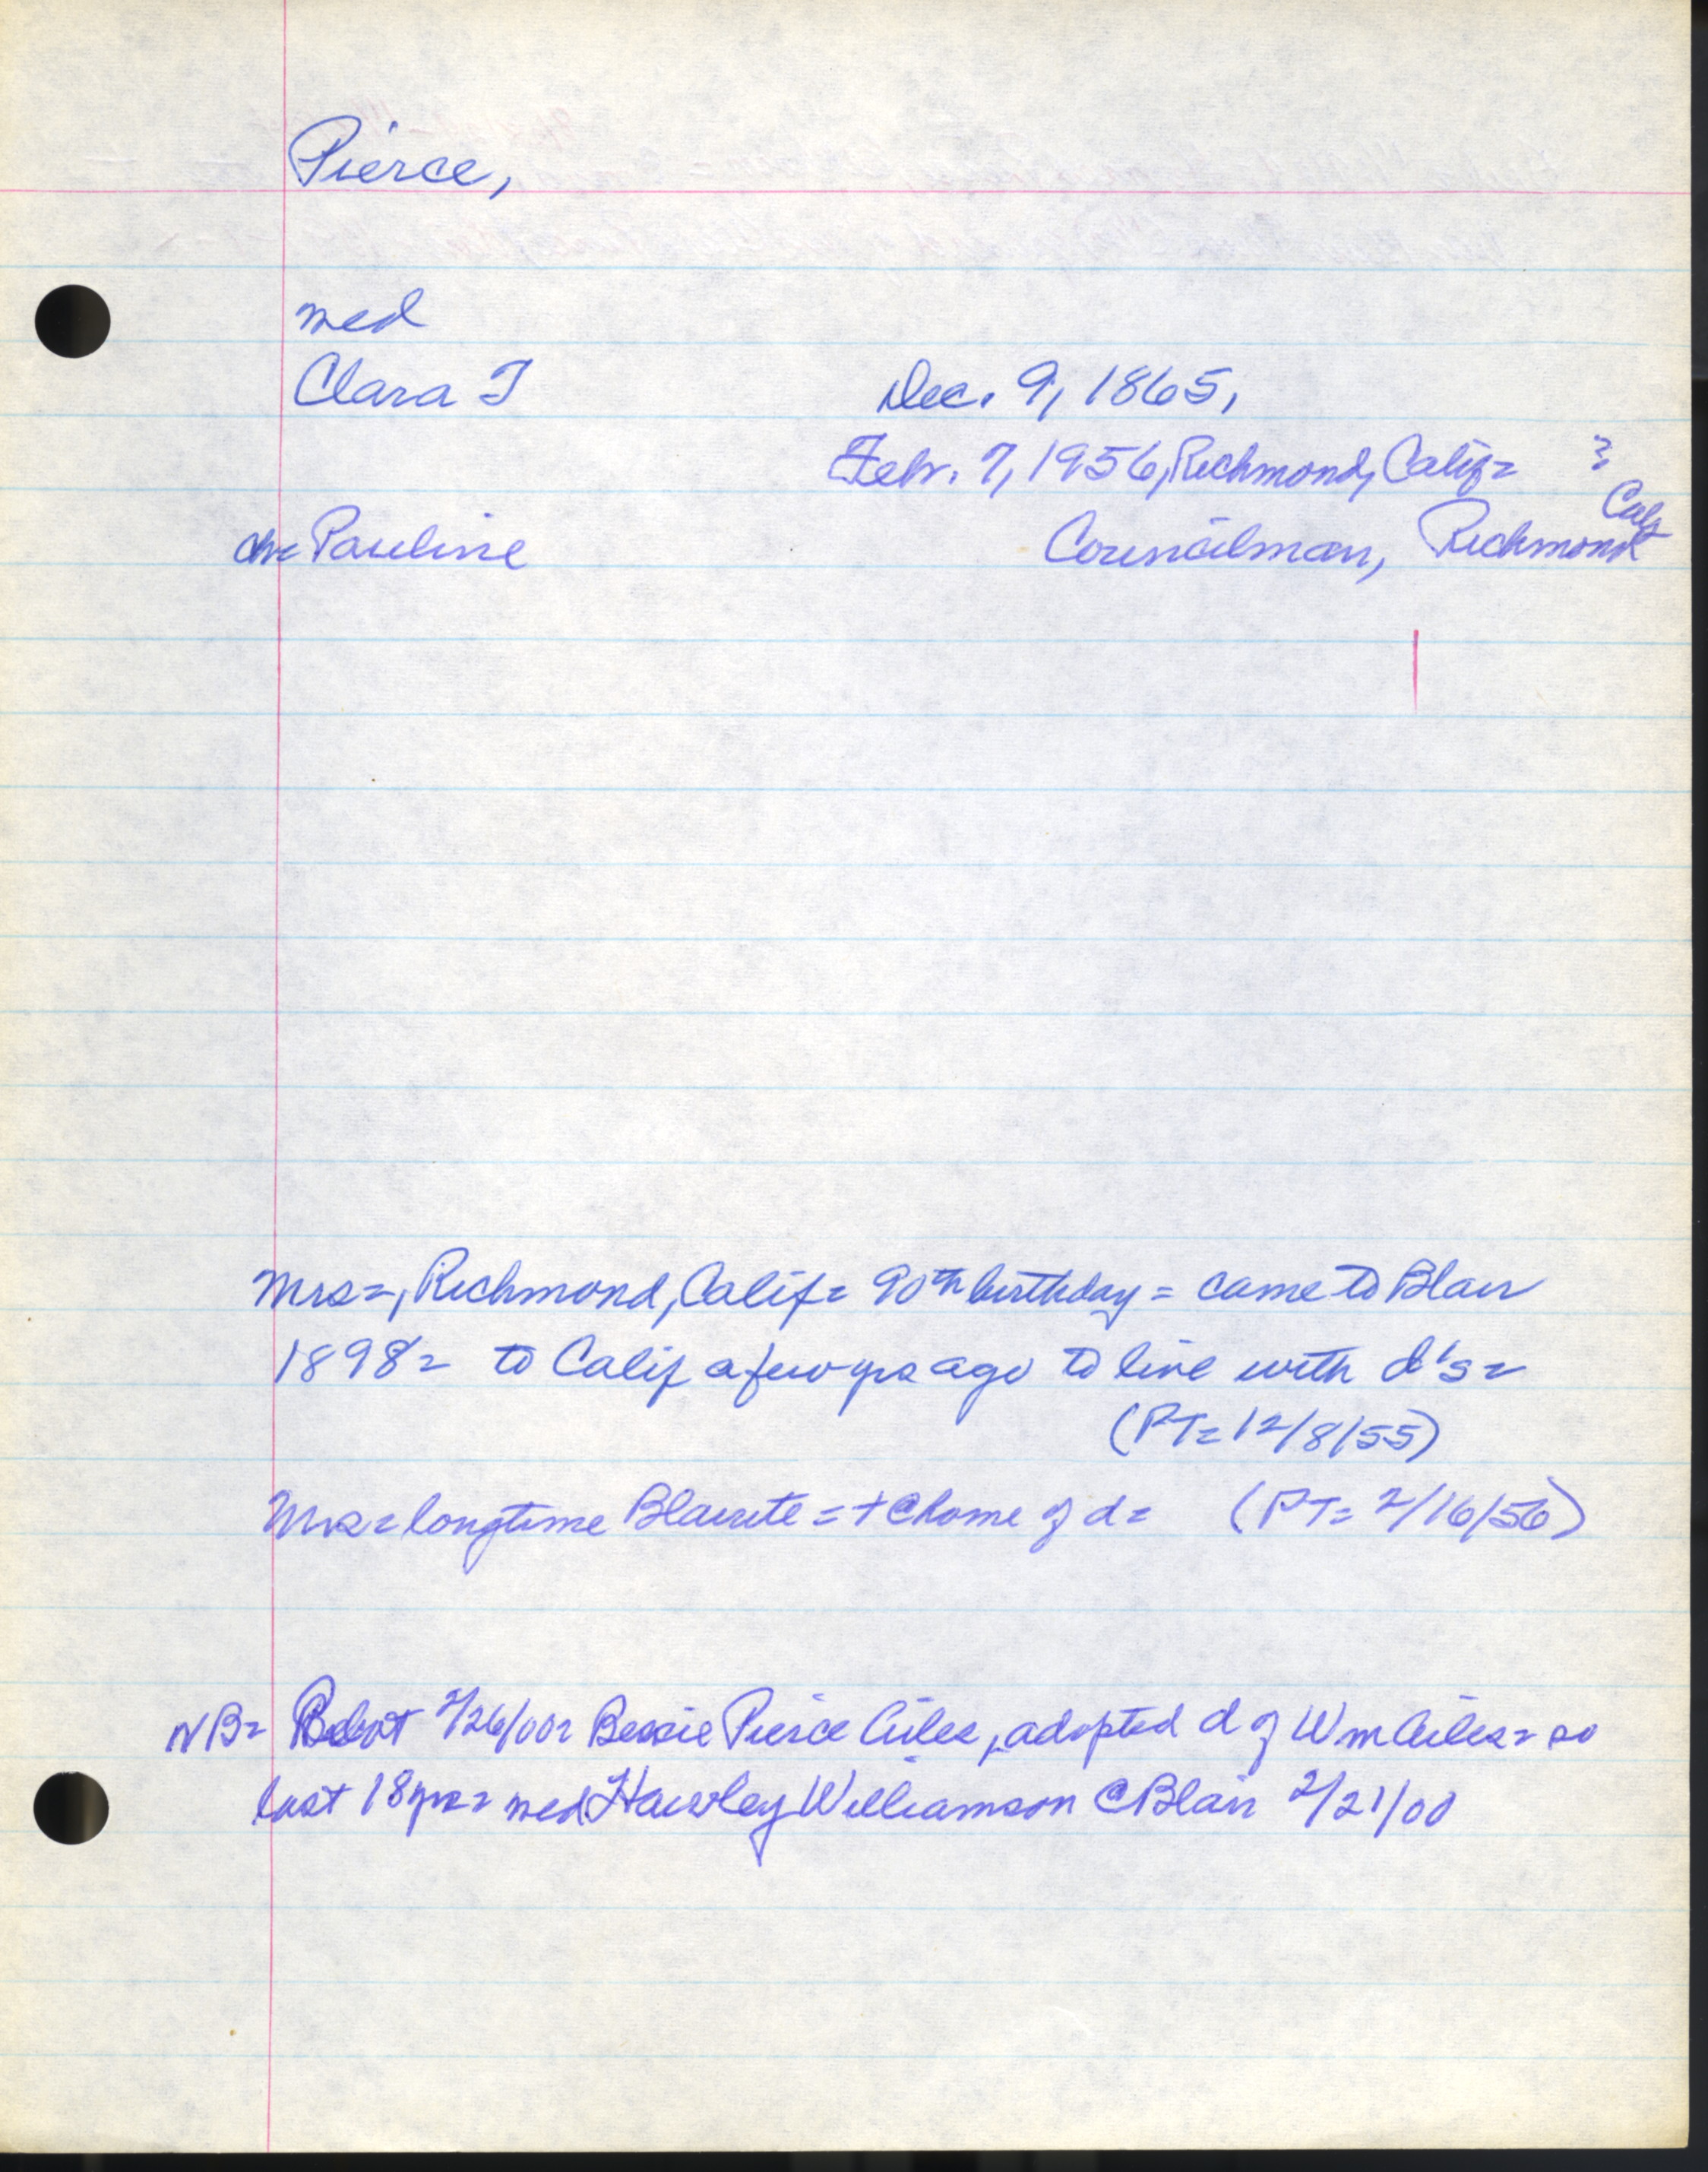 Pierce,
med
Clara T Dec. 9, 1865,
Feb. 7, 1956, Richmond, Calif=
ch= Pauline Councilman, Richmond Calif
Mrs=, Richmond, Calif= 90th birthday = came to Blair
1898= to Calif a few yrs ago to live with d's=
(PT= 12/8/55)
Mrs= longtime Blairite = + @ home of d= (PT= 2/16/56)
NB= 2/26/00= Bessie Pierce Ailes, adopted d of Wm Ailes= so
last 18 yrs= med Hawley Williamson @ Blair 2/21/00